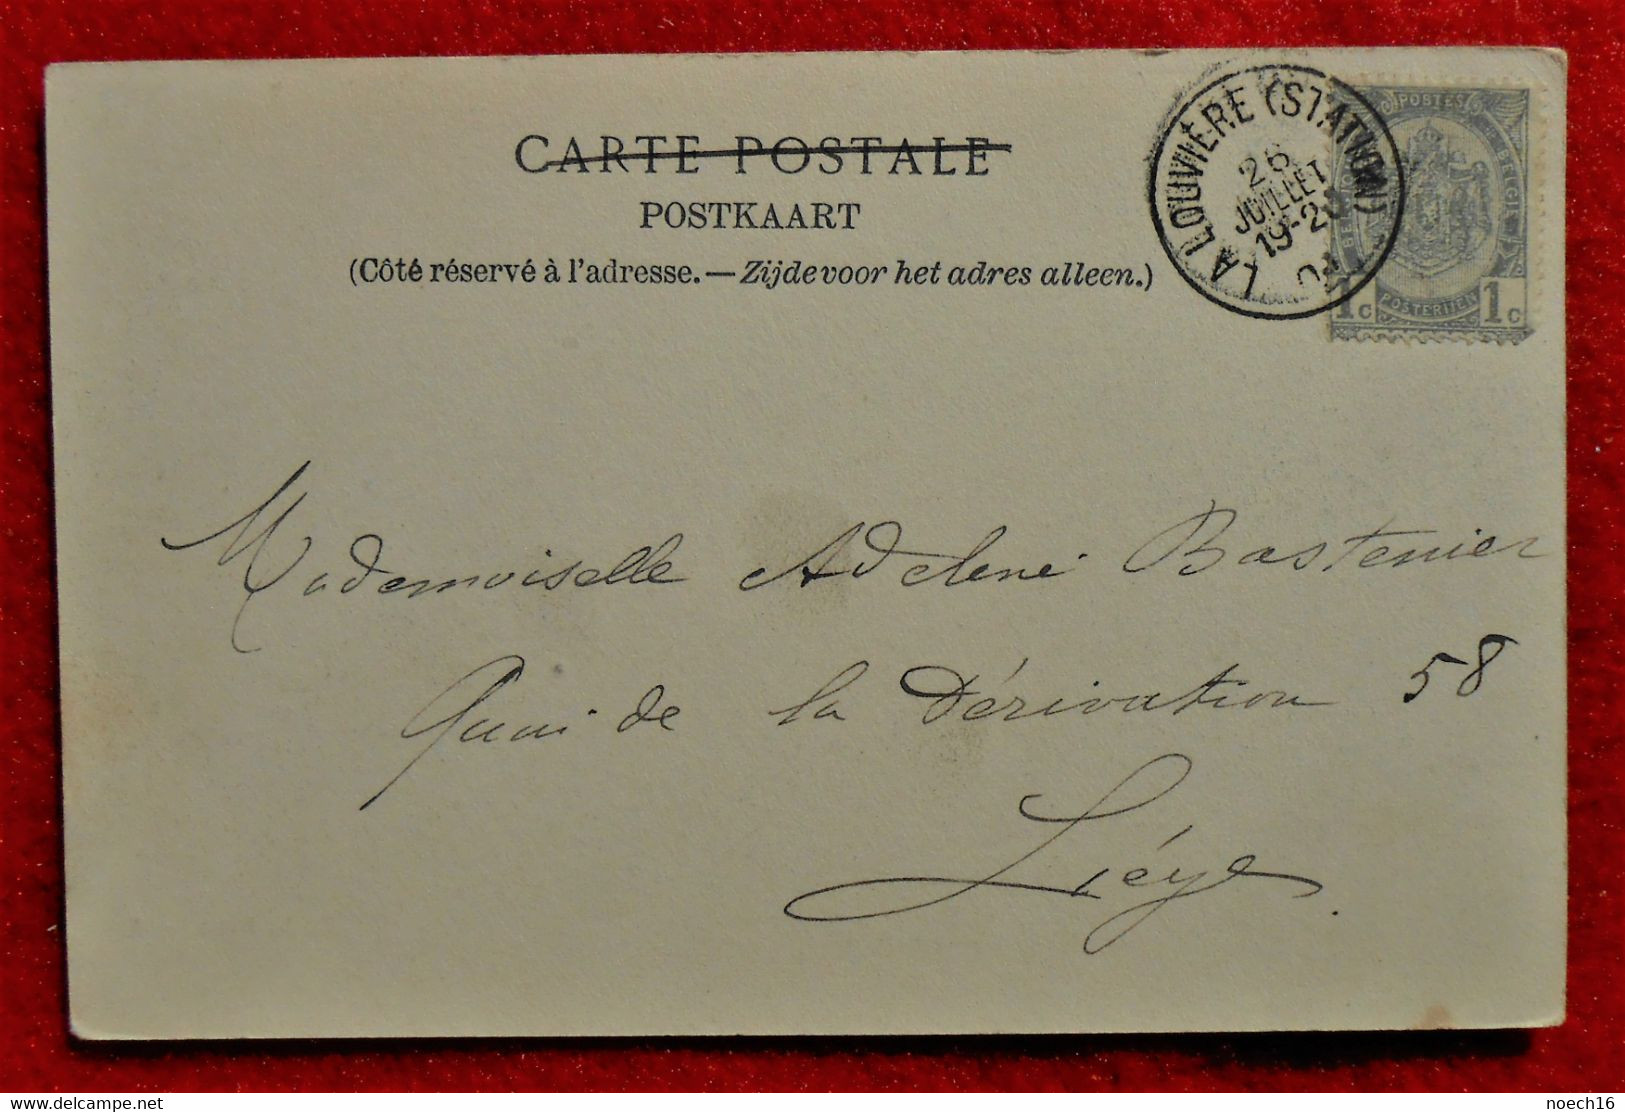 CARTE POSTALE
POSTKAART
(Côté réservé à l'adresse. — Zijde voor het adres alleen.)
LA LOUVIÈRE (STATION)
JUILLET
POSTES
BELGIQUE BELGIE
1c POSTERIJEN 1c
Mademoiselle Adelené Bastenier
Quai de la Dérivation 58
Liége.
delcampe.net
noech16